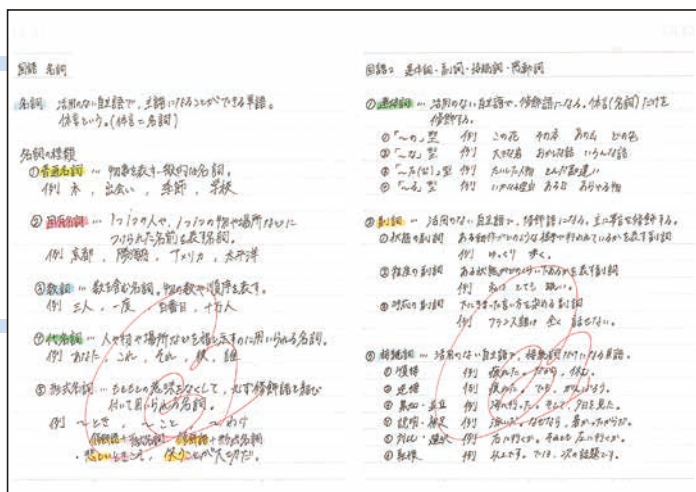 国語 名詞
名詞 活用のない自立語で、主語になることができる単語。
体言という。(体言=名詞)
名詞の種類
①普通名詞 … 物事を表す一般的な名詞。
例 本 , 出会い , 季節 , 学校
②固有名詞 … 1つ1つの人や、1つ1つの物や場所などに
つけられた名前を表す名詞。
例 京都 , アメリカ , 太平洋
③数詞 … 数を含む名詞。物の数や順序を表す。
例 三人 , 一度 , 百番目 , 十万人
④代名詞 … 人や物や場所などを指し示すのに用いられる名詞。
例 あなた , これ , それ , 彼 , 誰
⑤形式名詞 … もともとの意味をなくして、必ず修飾語を結び
付いて用いられる名詞。
例 ~とき , ~こと , ~わけ
修飾語+形式名詞 修飾語+形式名詞
・悲しいときこそ、笑うことが大切だ。
国語2 連体詞・副詞・接続詞・感動詞
①連体詞 … 活用のない自立語で、修飾語になる。体言(名詞)だけを
修飾する。
①「~の」型 例 この花 その君 あの山 どの色
②「~な」型 例 大きな君 おかしな話 いろんな話
③「~た(だ)」型 例 たいした物 とんだ勘違い
④「~る」型 例 いかなる理由 ある日 あらゆる物
②副詞 … 活用のない自立語で、修飾語になる。主に用言を修飾する。
①状態の副詞 ある動作がどのような様子で行われているかを表す副詞
例 ゆっくり 歩く。
②程度の副詞 ある状態がどのくらいであるかを表す副詞
例 私は とても 眠い。
③呼応の副詞 下に決まった言い方を求める副詞
例 フランス語は 全く 話せない。
③接続詞 … 活用のない自立語で、接続語だけになる単語。
①順接 例 疲れた。だから、休む。
②逆接 例 疲れた。でも、がんばろう。
③累加・並立 例 海に行った。そして、夕日を見た。
④説明・補足 例 泳いだ。なぜなら、暑かったからだ。
⑤対比・選択 例 右に行くか。それとも左に行くか。
⑥転換 例 以上です。では、次の話題です。